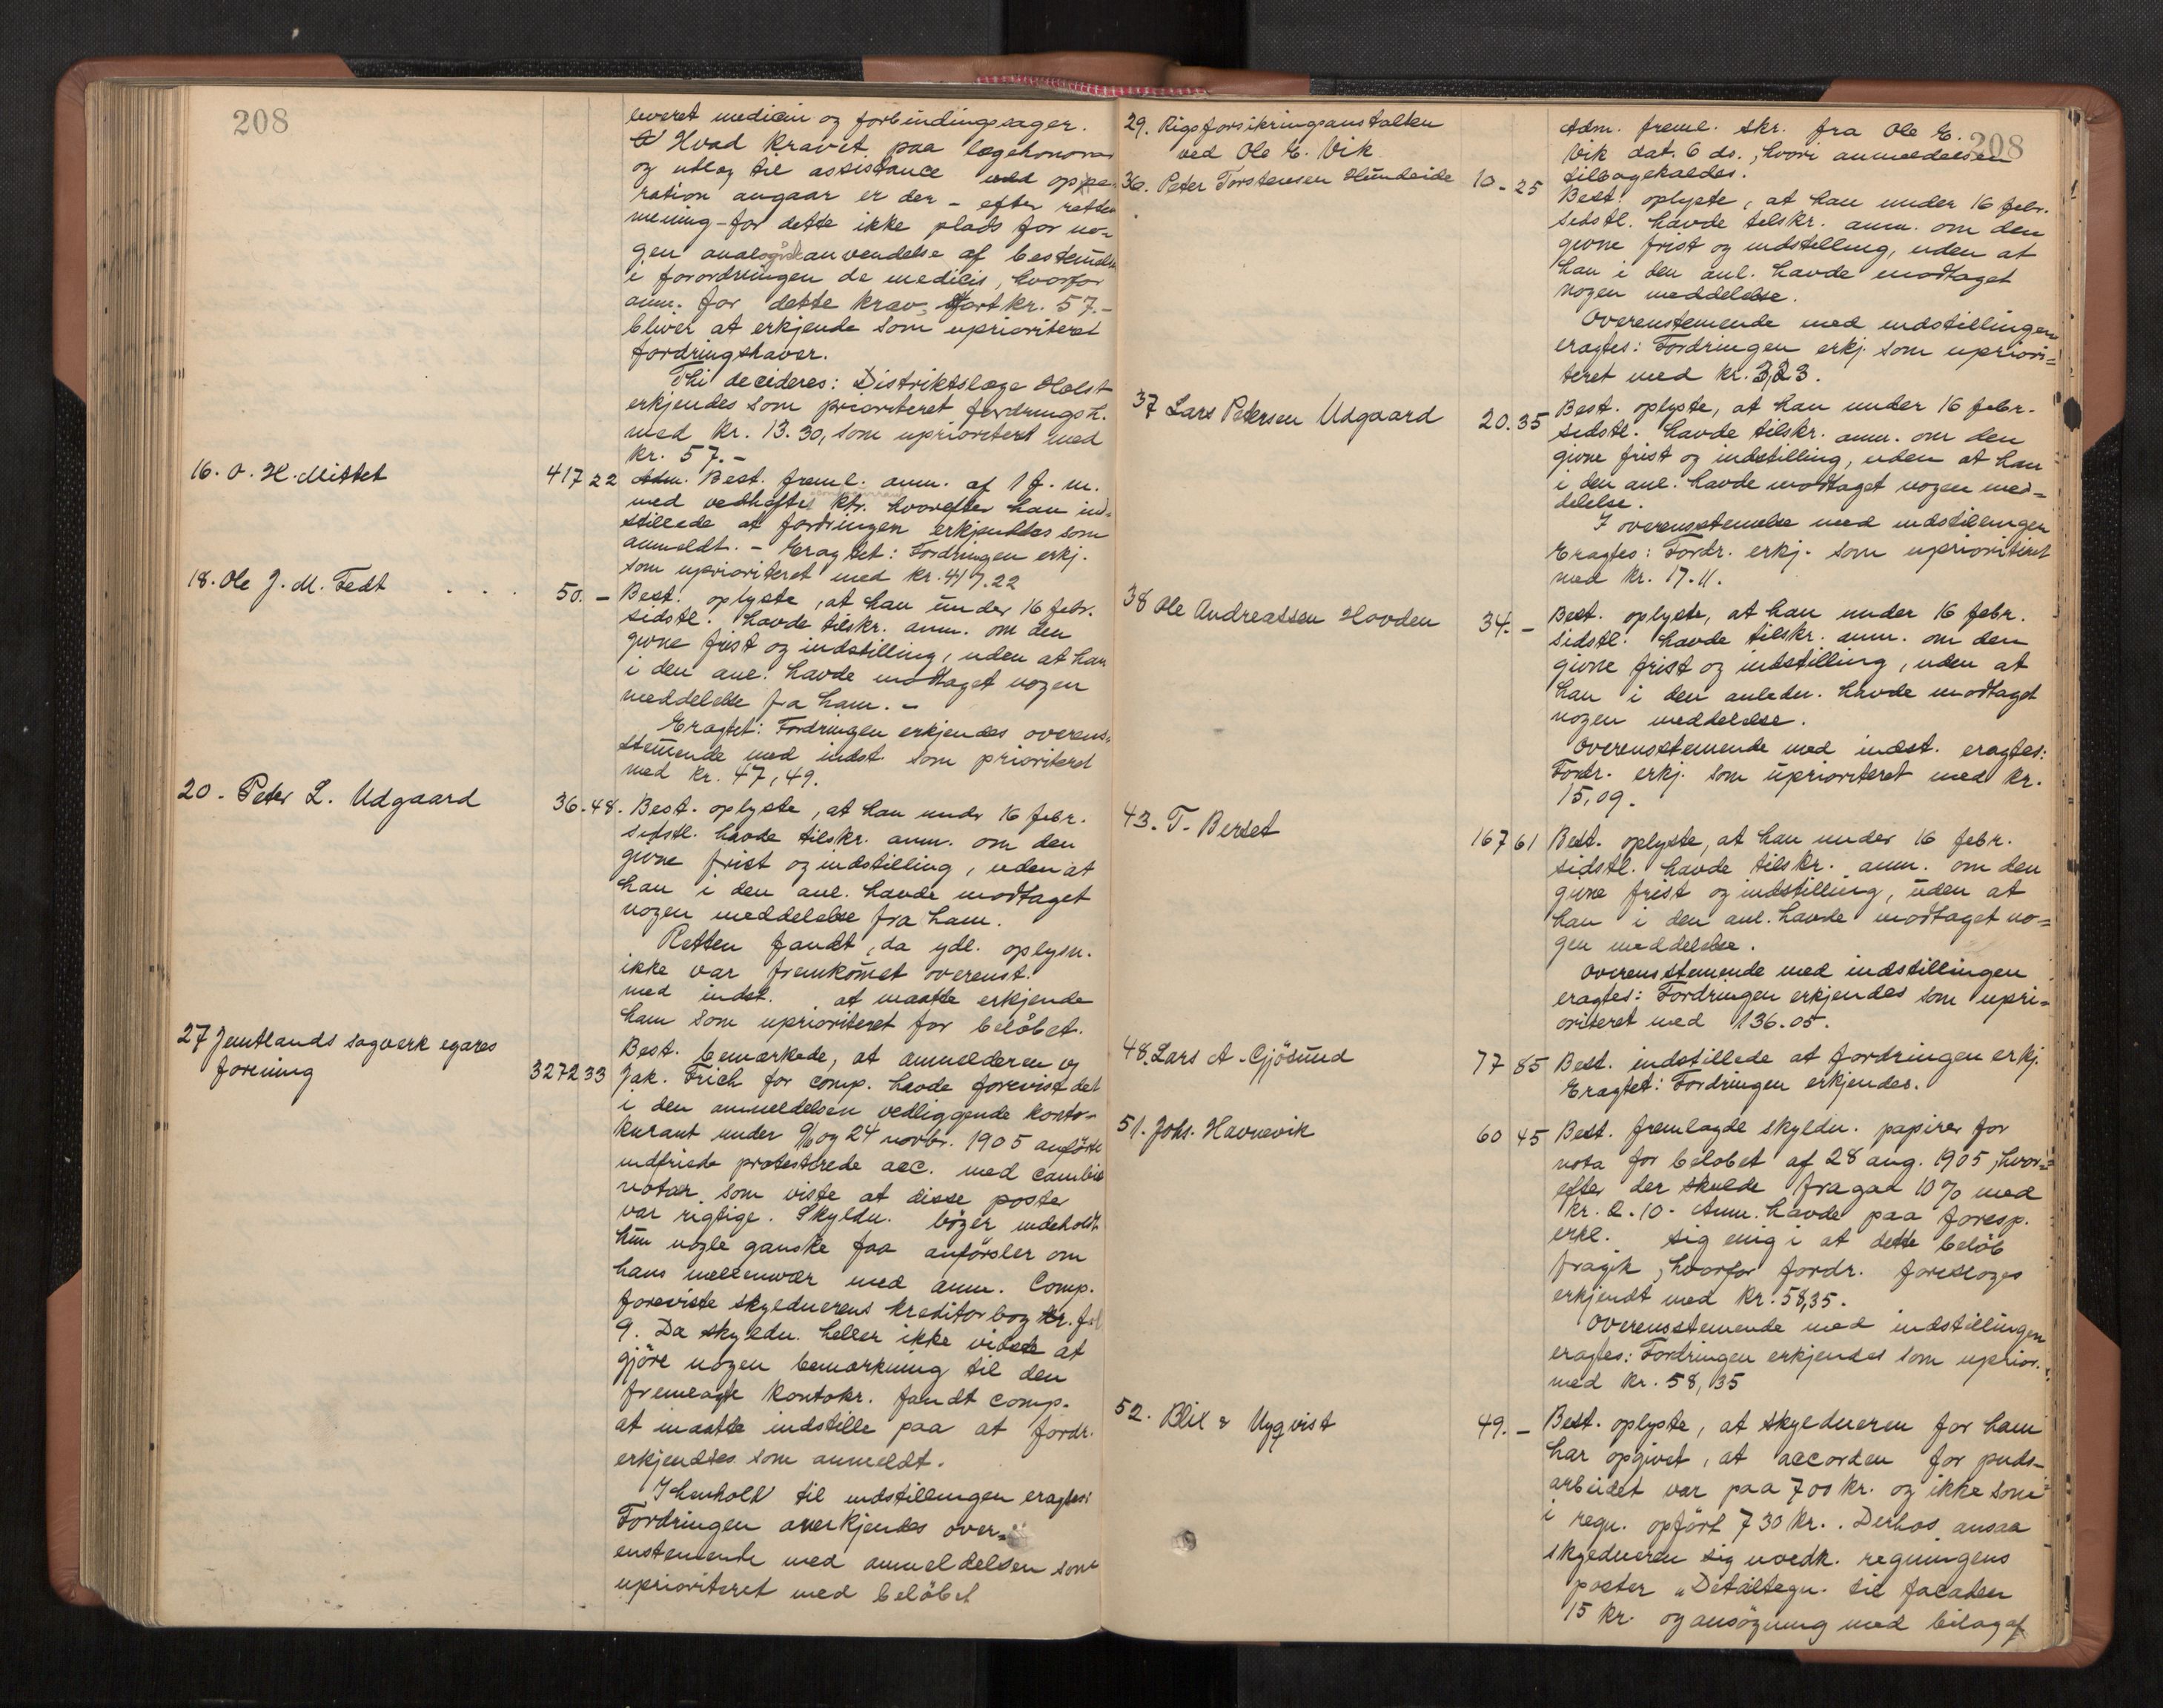 208
leveret medicin og forbindingssager.
Hvad kravet paa lægehonorar
og utlæg til assistance ved oppe-
ration angaar er der – efter rettens
mening – for dette ikke plads for no-
gen analogisk anvendelse af bestemmelse
i forordningen de medicis, hvorfor
anm. for dette krav, stort kr. 57.-
bliver at erkjende som uprioriteret
fordringshaver.
Thi decideres: Distriktslæge Holst
erkjendes som prioriteret fordringsh.
med kr. 13.30, som uprioriteret med
kr. 57.-
16. O. H. Mittet 417 22 Best. freml. anm. af 1 f. m.
med vedheftet ktr. hvorefter han ind-
stillede at fordringen erkjendtes som
anmeldt. – Eragtet: Fordringen erkj.
som uprioriteret med kr. 417.22
18. Ole J. M. Tedt . . . 50. – Best. oplyste, at han under 16 febr.
sidstl. havde tilskr. anm. om den
givne frist og indstilling, uden at han
i den anl. havde modtaget nogen
meddelelse fra ham. –
Eragtet: Fordringen erkjendes overens-
stemende med indst. som prioriteret
med kr. 47,49.
20. Peter L. Udgaard 36.48. Best. oplyste, at han under 16 febr.
sidstl. havde tilskr. anm. om den
givne frist og indstilling, uden at
han i den anl. havde modtaget
nogen meddelelse fra ham.
Retten fandt, da ydl. oplysn.
ikke var fremkomet overenst.
med indst. at maatte erkjende
ham som uprioriteret for beløbet.
27 Jemtlands sagverk egares
forening 3272 33
Best. bemærkede, at anmelderen og
Jak. Frich for comp. havde forevist det
i den anmeldelsen vedliggende konto-
kurant under 9/6 og 24 novbr. 1905 anførte
indfriede protesterede acc. med cambie
notar. som viste at disse poster
var rigtige. Skyldn. bøger indeholdt
kun nogle ganske faa anførsler om
hans mellemvær med anm. Comp.
foreviste skyldnerens kreditorbog fol
9. Da skyldn. heller ikke vidste at
gjøre nogen bemærkning til den
fremlagte kontokr. fandt comp.
at maatte indstille paa at fordr.
erkjendtes som anmeldt.
I henhold til indstillingen eragtes:
Fordringen anerkjendes over-
enstemende med anmeldelsen som
uprioriteret med beløbet
208
29. Rigsforsikringsanstalten
ved Ole E. Vik
Adm. freml. skr. fra Ole E.
Vik dat. 6 ds., hvori anmeldelsen
tilbagekaldes.
36. Peter Torstensen Hundeide 10 - 25 Best. oplyste, at han under 16 febr.
sidstl. havde tilskr. anm. om den
givne frist og indstilling, uden at
han i den anl. havde modtaget
nogen meddelelse.
Overenstemende med indstillingen
eragtes: Fordringen erkj. som upriori-
teret med kr. 3,23.
37 Lars Petersen Udgaard 20.35 Best. oplyste, at han under 16 febr.
sidstl. havde tilskr. anm. om den
givne frist og indstilling, uden at han
i den anl. havde modtaget nogen med-
delelse.
I overensstemelse med indstillingen
Eragtes: Fordr. erkj. som uprioriteret
med kr. 17.11.
38 Ole Andreassen Hovden 34. – Best. oplyste, at han under 16 febr.
sidstl. havde tilskr. anm. om den
givne frist og indstilling, uden at
han i den anledn. havde modtaget
nogen meddelelse.
Overensstemende med indst. eragtes:
Fordr. erkj. som uprioriteret med kr.
15,09.
43. T. Berset 167 61 Best. oplyste, at han under 16 febr.
sidstl. havde tilskr. anm. om den
givne frist og indstilling, uden at
han i den anl. havde modtaget no-
gen meddelelse.
Overensstemende med indstillingen
eragtes: Fordringen erkjendes som upri-
oriteret med 136.05.
48. Lars A. Gjøsund 77 85 Best. indstillede at fordringen erkj.
Eragtet: Fordringen erkjendes.
51. Johs. Havnevik 60 45 Best. fremlagde skyldn. papirer for
nota for beløbet af 28 aug. 1905, hvor-
efter der skulde fragaa 10% med
kr. 2.10. Anm. havde paa foresp.
erkl. sig enig i at dette beløb
fragik, hvorfor fordr. foresloges
erkjendt med kr. 58,35.
Overensstemende med indstillingen
eragtes: Fordringen erkjendes som uprior.
med kr. 58,35
52. Blix & Nyqvist 49. – Best. oplyste, at skyldneren for ham
har opgivet, at accorden for puds-
arbeidet var paa 700 kr. og ikke som
i regn. opført 730 kr. . Derhos ansaa
skyldneren sig uvedk. regningens
poster „Detaltegn. til facaden
15 kr. og ansøgning med bilag af